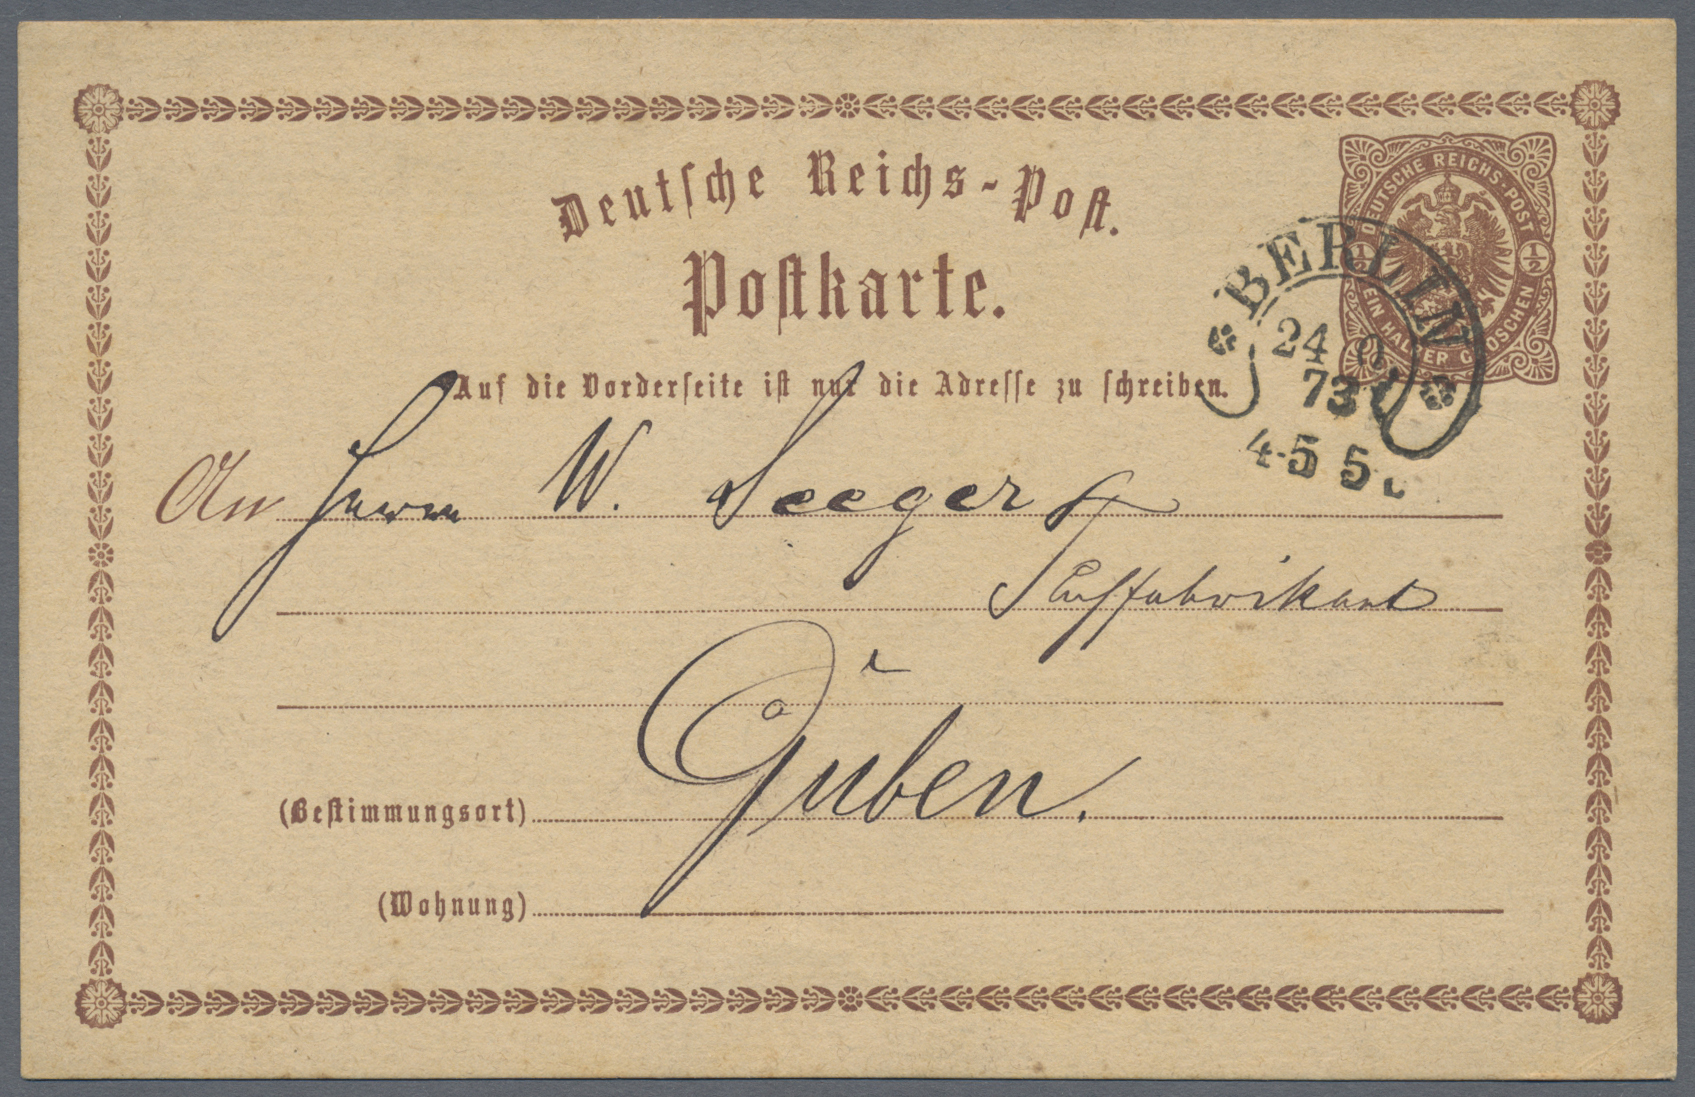 Deutsche Reichs-Post.
DEUTSCHE REICHS-POST
½ ½
EIN HALBER GROSCHEN
Postkarte.
BERLIN
24
73
4-5
Auf die Vorderseite ist nur die Adresse zu schreiben.
An Herrn W. Seeger
in
Guben.
(Bestimmungsort)
(Wohnung)